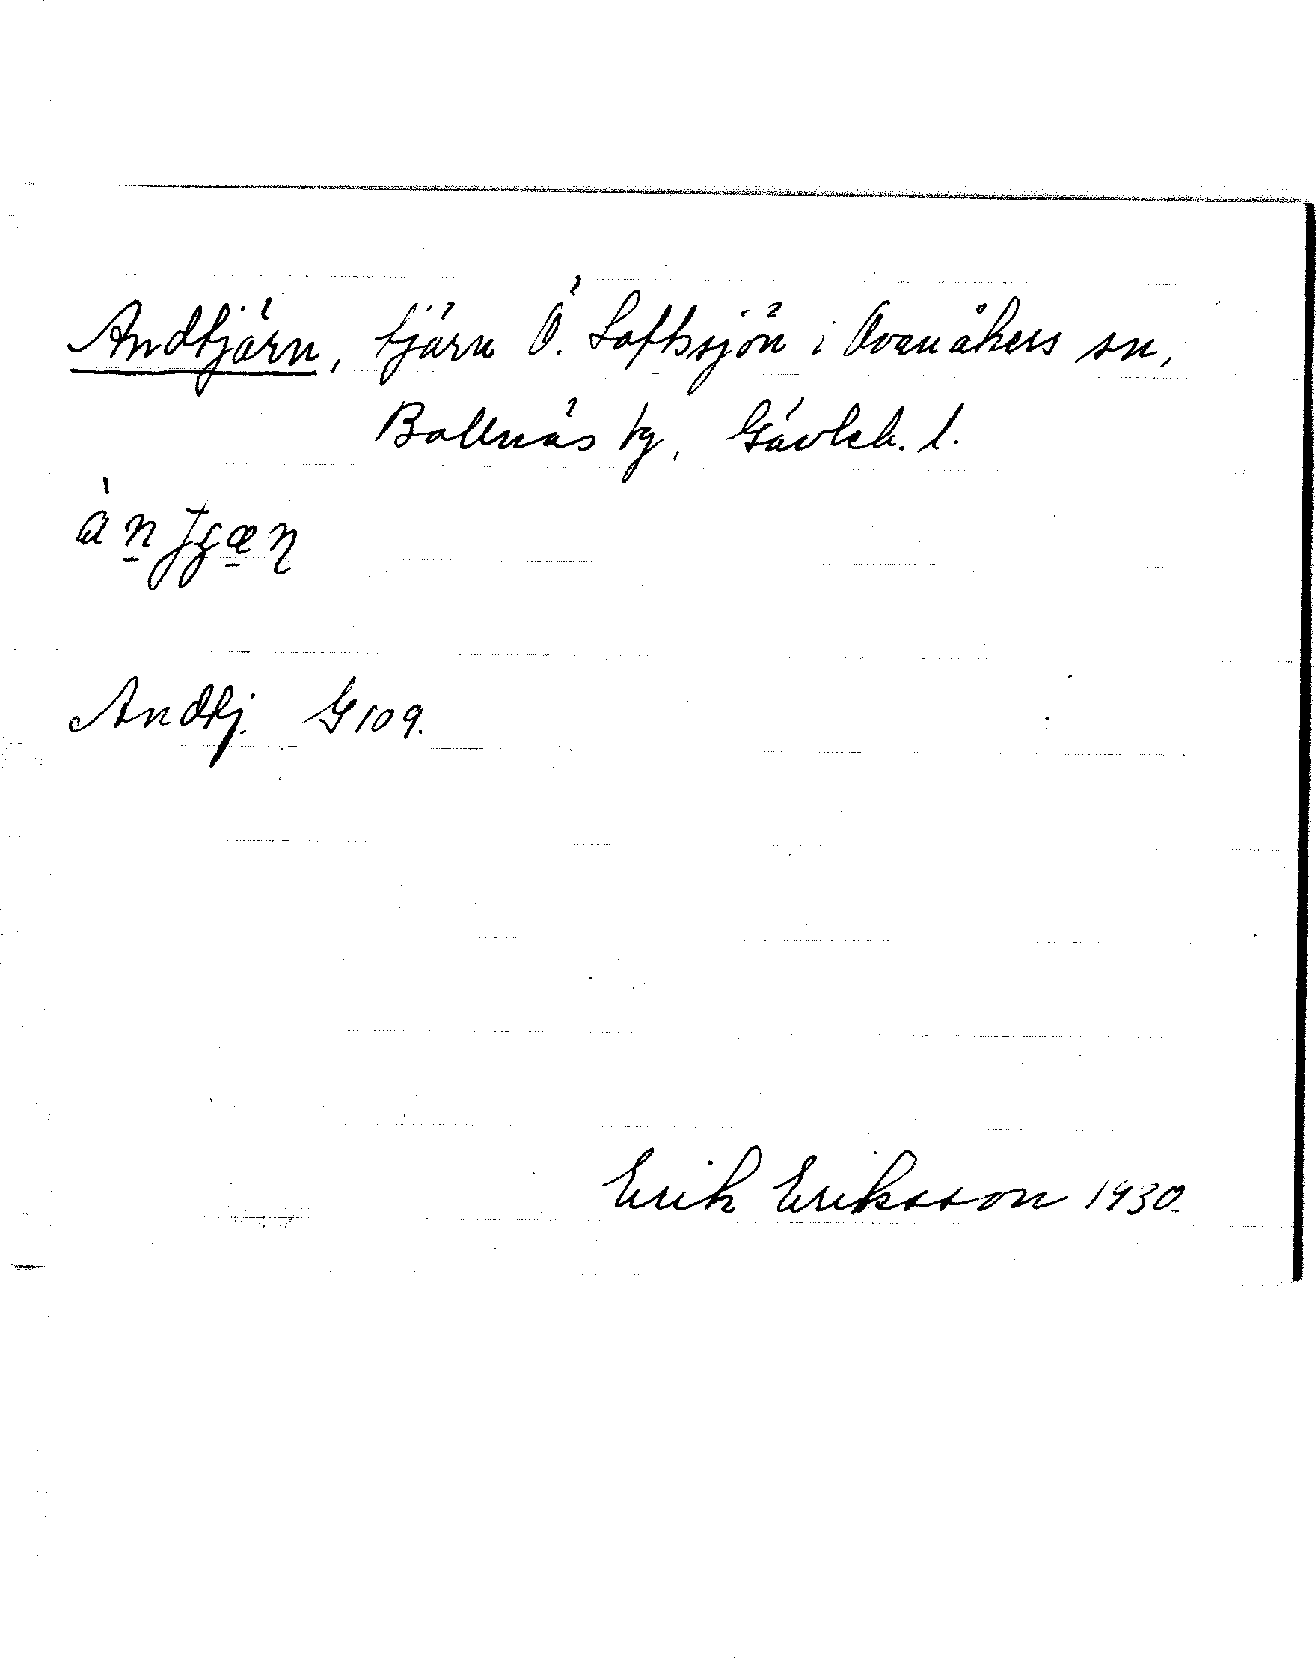 Andtjärn, tjärn Ö. Loftssjön i Ovanåkers sn,
Bollnäs tg, Gävleb. l.
Andtj. G109.
Erik Eriksson 1930